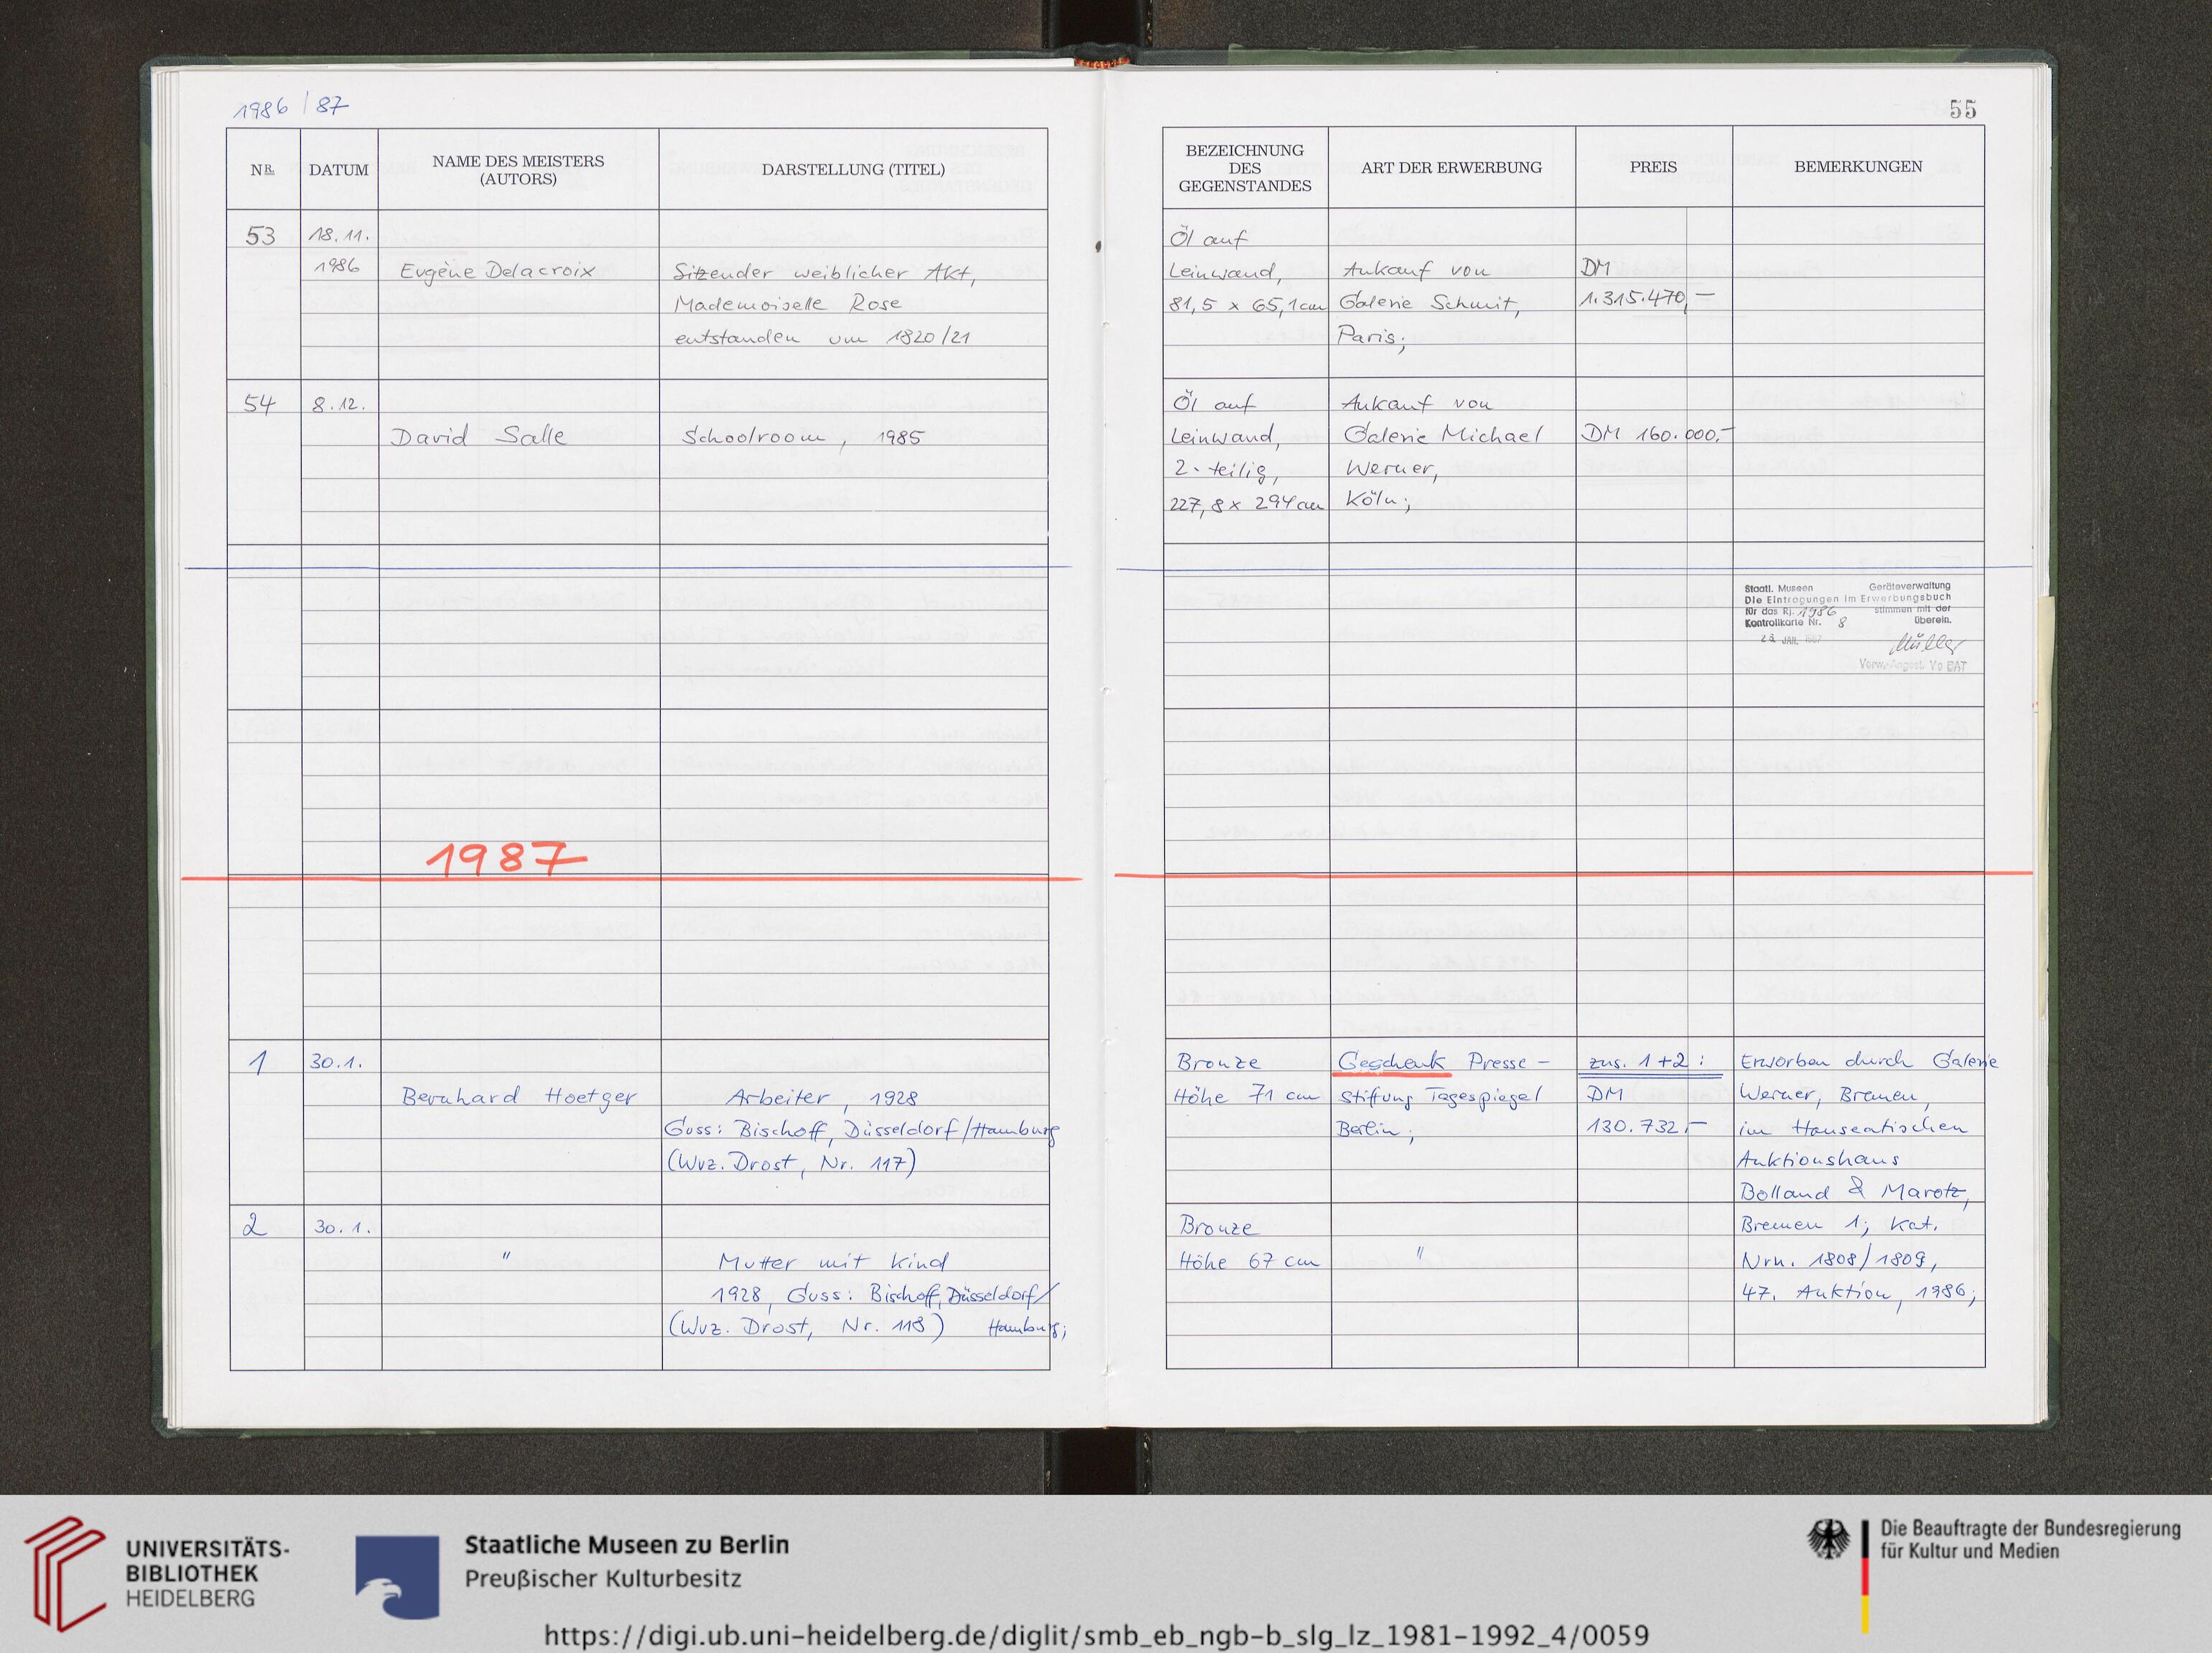 1986 / 87
55
NR. DATUM NAME DES MEISTERS (AUTORS) DARSTELLUNG (TITEL)
BEZEICHNUNG DES GEGENSTANDES ART DER ERWERBUNG PREIS BEMERKUNGEN
53 18.11. Öl auf
1986 Eugène Delacroix Sitzender weiblicher Akt, Leinwand, Ankauf von DM
Mademoiselle Rose 81,5 x 65,1 cm Galerie Schmit, 1.315.470,—
entstanden um 1820/21 Paris;
54 8.12. Öl auf Ankauf von
David Salle Schoolroom, 1985 Leinwand, Galerie Michael DM 160.000.-
2-teilig, Werner,
227,8 x 294 cm Köln;
Staatl. Museen Geräteverwaltung
Die Eintragungen im Erwerbungsbuch
für das Rj. 1986 stimmen mit der
Kontrollkarte Nr. 8 überein.
JAN. Müller
Verw.-Angest. Vc BAT
1987
1 30.1. Bronze Geschenk Presse- zus. 1+2: Erworben durch Galerie
Bernhard Hoetger Arbeiter, 1928 Höhe 71 cm Stiftung Tagespiegel DM Werner, Bremen,
Guss: Bischoff, Düsseldorf/Hamburg Berlin; 130.732.— im Hanseatischen
(Wvz. Drost, Nr. 117) Auktionshaus
Bolland & Marotz,
2 30.1. Bronze Bremen 1; Kat.
" Mutter mit Kind Höhe 67 cm " Nrn. 1808/1809,
1928, Guss: Bischoff, Düsseldorf/ 47. Auktion, 1986;
(Wvz. Drost, Nr. 118) Hamburg;
UNIVERSITÄTS-
BIBLIOTHEK
HEIDELBERG
Staatliche Museen zu Berlin
Preußischer Kulturbesitz
Die Beauftragte der Bundesregierung
für Kultur und Medien
https://digi.ub.uni-heidelberg.de/diglit/smb_eb_ngb-b_slg_lz_1981-1992_4/0059